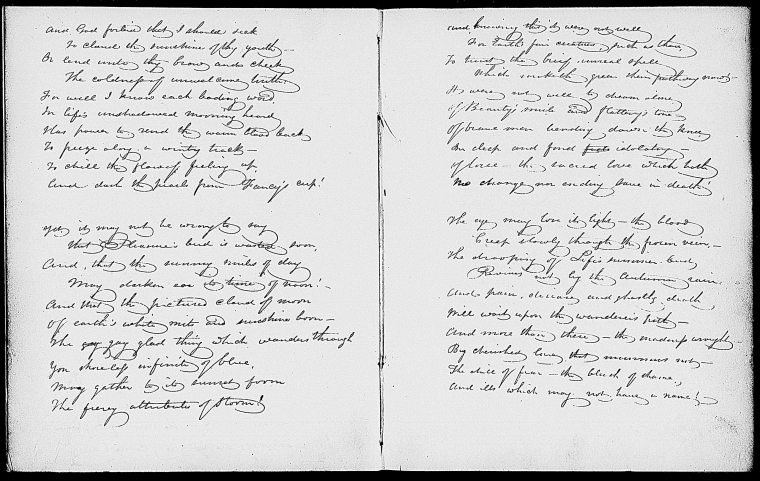 And God forbid that I should seek
To cloud the sunshine of thy youth –
Or lend unto thy brow and cheek
The coldness of unwelcome truth.
For well I know each boding word,
In life's unshadowed morning heard
Has power to send the warm blood back
To freeze along a wintry track –
To chill the flow of feeling up,
And dash the pearls from Fancy's cup!
Yet, it may not be wrong to say
that Pleasure's bud is wasted soon,
And, that the sunny smiles of day
May darken ere its time of noon! –
And that the pictured cloud of moon
Of earth's white mits and sunshine born –
The gay gay glad thing which wanders through
Yon shoreless infinite of blue,
May gather to its sunset form
The fierey attributes of Storm!
And, knowing this it were not well
For Earth's fair creatures, such as thou,
To trust the brief unreal spell
Which maketh green their pathway now –
It were not well to dream alone
Of Beauty's smile and flattery's tone
Of brave men bending down the knee
In deep and fond idolatry –
Of love – the sacred love which hath
No change nor ending save in death!
The eye may lose its light – the blood
Creep slowly through the frozen vein, –
The drooping of Life's summer bud,
Revived not by the Autumn rain.
And pain, disease and ghastly death
Will wait upon the wanderer's path –
And more than these – the madness wrought
By cherished love, that murmurs not –
The chill of fear – the blush of shame,
And ills which may not have a name!